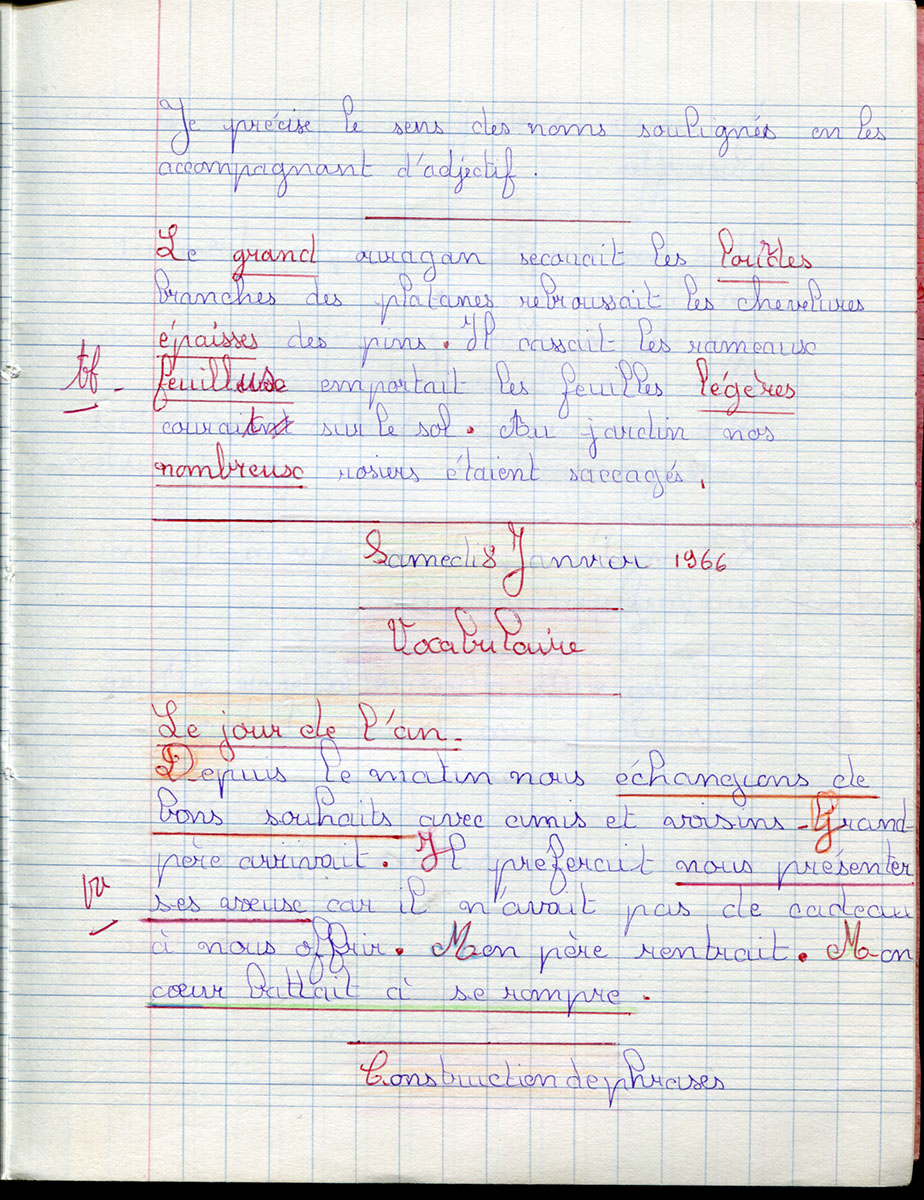 Je précise le sens des noms soulignés en les
accompagnant d'adjectif.
Le grand ouragan secouait les lourdes
branches des platanes rebroussait les chevelures
épaisses des pins. Il cassait les rameaux
tb
feuilluse emportait les feuilles légères
courait sur le sol. Au jardin nos
nombreuse rosiers étaient saccagés.
Samedi 8 Janvier 1966
Vocabulaire
Le jour de l'an.
Depuis le matin nous échangions de
bons souhaits avec amis et voisins - Grand-
père arrivait. Il preferait nous présenter
vu
ses vœuse car il n'avait pas de cadeau
à nous offrir. Mon père rentrait. Mon
cœur battait à se rompre.
Construction de phrases